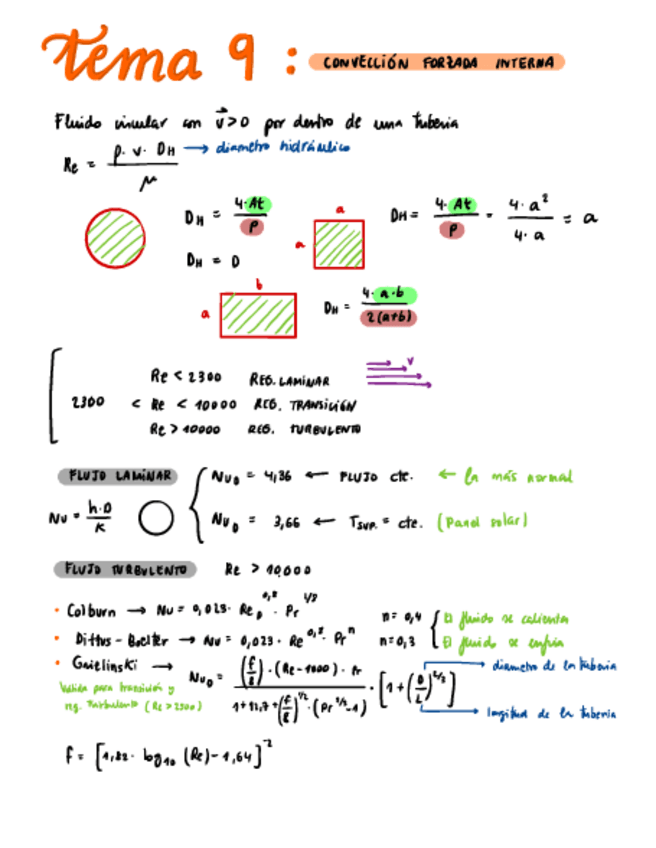 tema 9 : CONVECCIÓN FORZADA INTERNA
Fluido circular con v⃗>0 por dentro de una tuberia
Re = ρ. v. DH / μ → diametro hidráulico
DH = 4·At / P
DH = D
a
a
DH = 4·At / P = 4·a² / 4·a = a
b
a
DH = 4·a·b / 2(a+b)
Re < 2300 REG. LAMINAR
2300 < Re < 10000 REG. TRANSICIÓN
Re > 10000 REG. TURBULENTO
v
FLUJO LAMINAR
Nu = h·D / K
NuD = 4,36 ← FLUJO cte. ← la más normal
NuD = 3,66 ← Tsup. = cte. (Panel solar)
FLUJO TURBULENTO Re > 10000
• Colburn → Nu = 0,023· ReD^0,8 · Pr^1/3
• Dittus - Boelter → Nu = 0,023· Re^0,8 · Pr^n
n = 0,4 { El fluido se calienta
n = 0,3 { El fluido se enfria
• Gnielinski → NuD = (f/8)·(Re-1000)·Pr / 1+12,7+(f/8)^1/2·(Pr^2/3-1) · [1+(D/L)^2/3]
Valida para transición y
reg. Turbulento (Re>2300)
→ diametro de la tuberia
→ longitud de la tuberia
f = [1,82· log10 (Re)-1,64]^-2